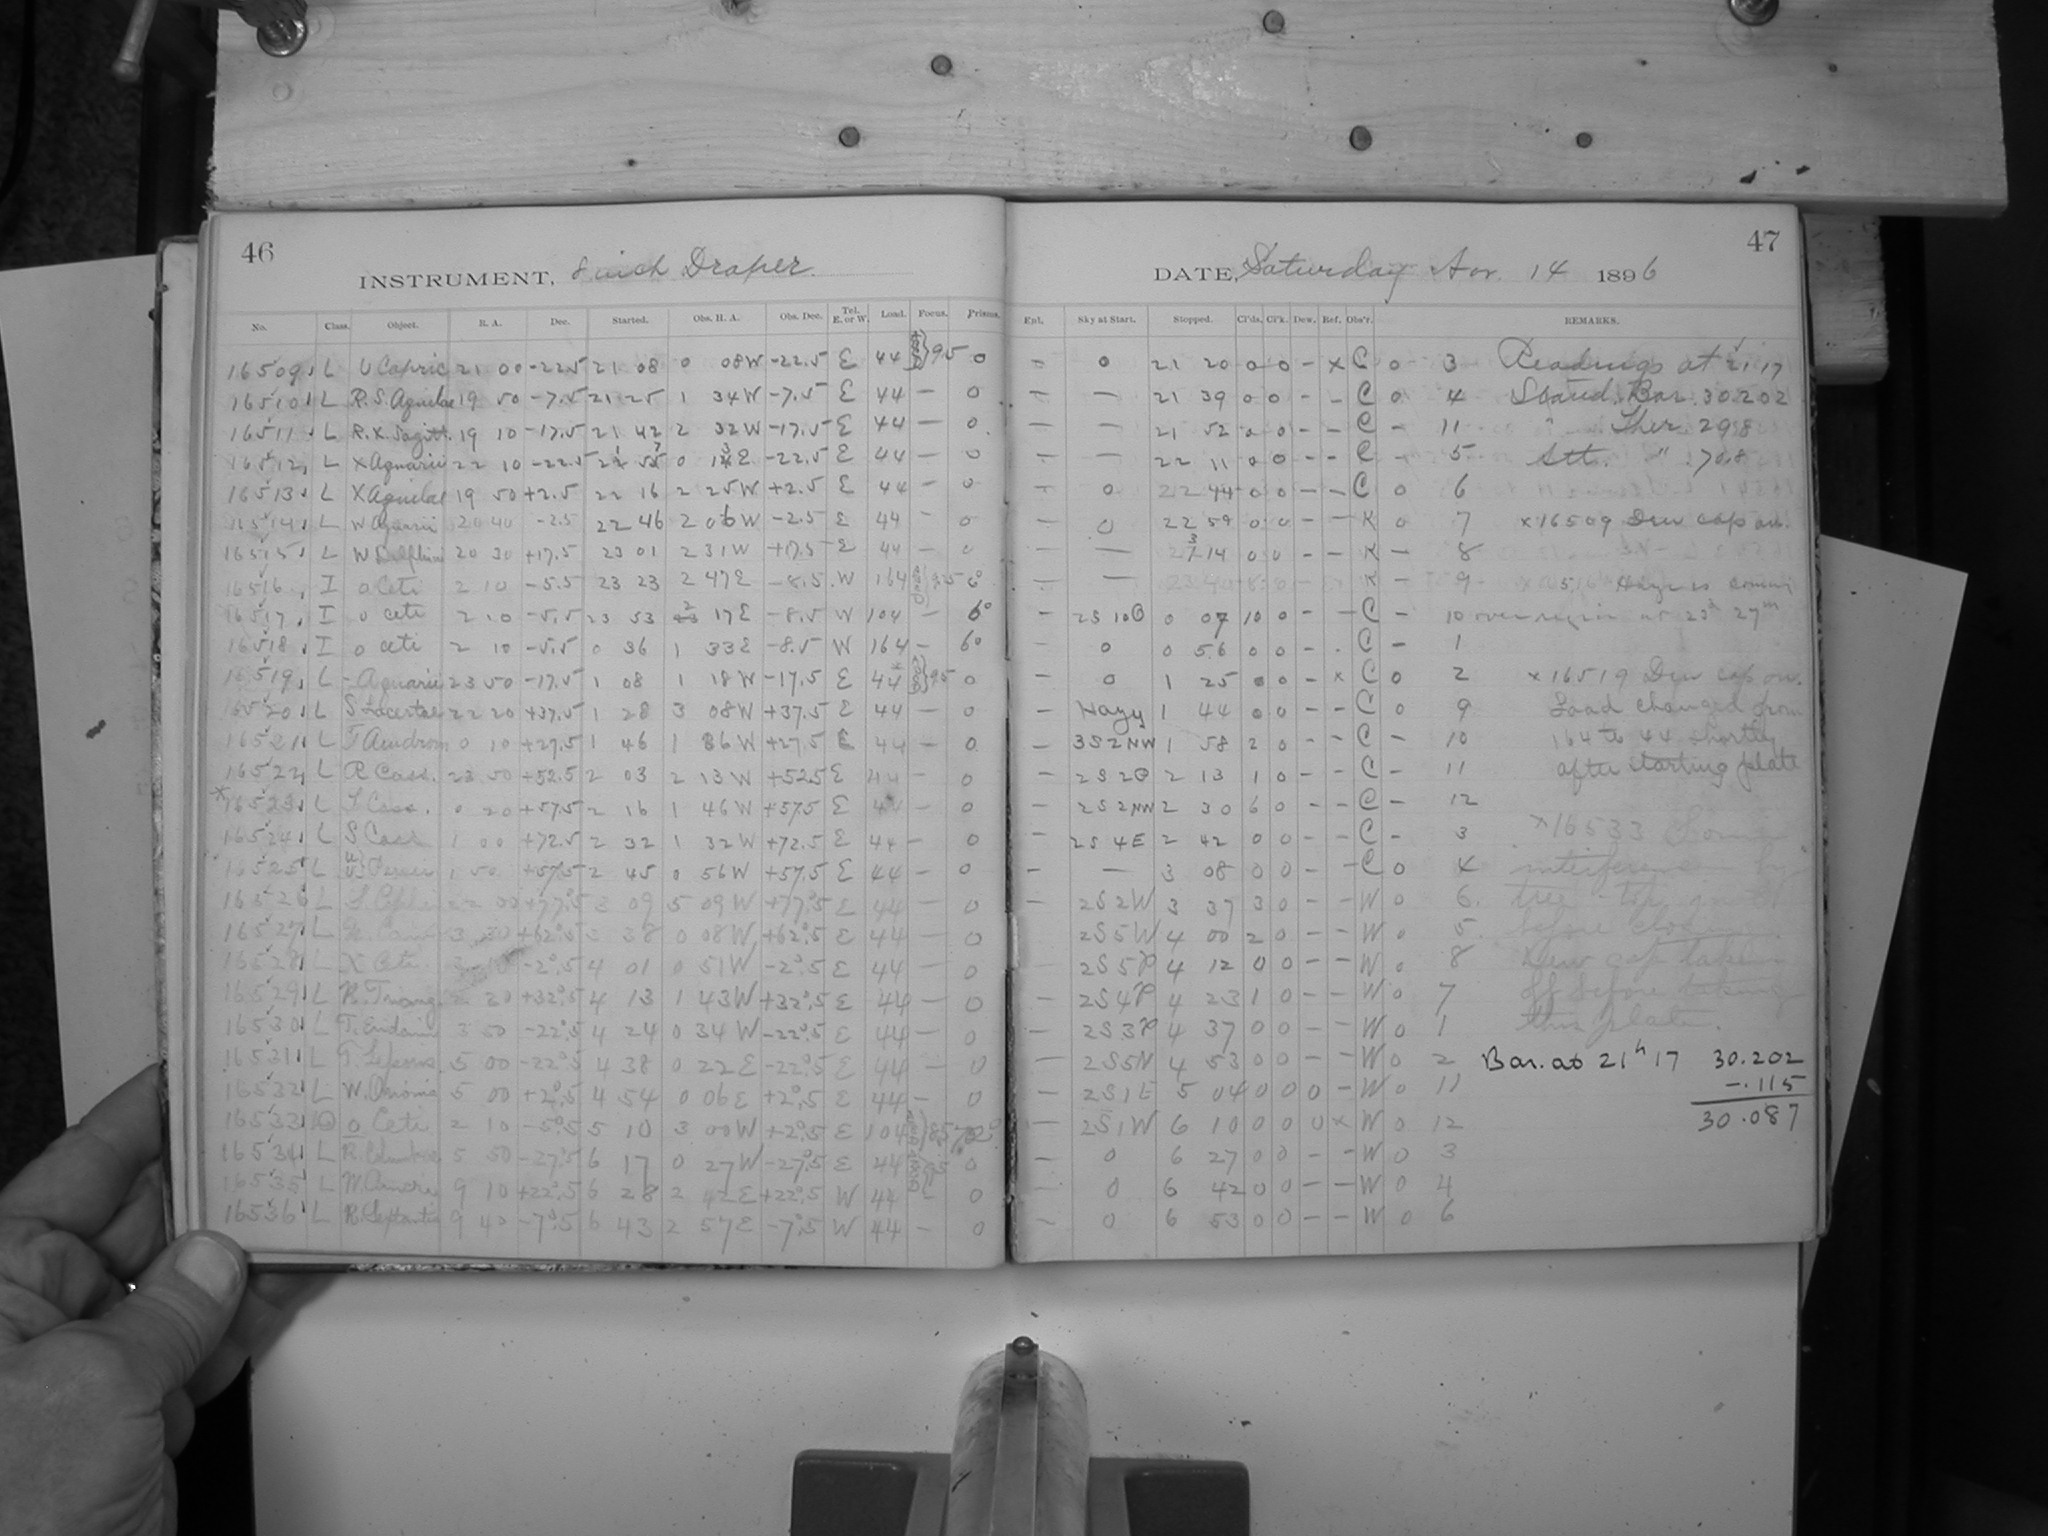 46
INSTRUMENT, 8 inch Draper.
No. Class. Object. R. A. Dec. Started. Obs. H. A. Obs. Dec. Tel. E. or W. Load. Focus. Prisms.
16509 L U Capric 21 00 -22.5 21 08 0 08W -22.5 E 44 95 0
16510 L R.S. Aquilae 19 50 -7.5 21 25 1 34W -7.5 E 44 — 0
16511 L R.X. Sagitt. 19 10 -17.5 21 42 2 32W -17.5 E 44 — 0
16512 L X Aquarii 22 10 -22.5 0 E -22.5 E 44 — 0
16513 L X Aquilae 19 50 +2.5 22 16 2 25W +2.5 E 44 — 0
16514 L W Aquarii 20 40 -2.5 22 46 2 06W -2.5 E 44 — 0
16515 L W Delphini 20 30 +17.5 23 01 2 31W +17.5 E 44 — 0
16516 I o Ceti 2 10 -5.5 23 23 2 47E -8.5 W 164 6°
16517 I o Ceti 2 10 -5.5 23 53 2 17E -8.5 W 104 — 6°
16518 I o Ceti 2 10 -5.5 0 36 1 33E -8.5 W 164 — 6°
16519 L - Aquarii 23 50 -17.5 1 08 1 18W -17.5 E 44 95 0
16520 L S Lacertae 22 20 +37.5 1 28 3 08W +37.5 E 44 — 0
16521 L T Androm 0 10 +27.5 1 46 1 36W +27.5 E 44 — 0
16522 L R Cass. 23 50 +52.5 2 03 2 13W +52.5 E 44 — 0
*16523 L T Cass. 0 20 +57.5 2 16 1 46W +57.5 E 44 — 0
16524 L S Cass 1 00 +72.5 2 32 1 32W +72.5 E 44 — 0
16525 L Persei 1 50 +57.5 2 45 0 56W +57.5 E 44 — 0
16526 L S. Cephei 22 00 +77.5 3 09 5 09W +77.5 E 44 — 0
16527 L Cam 3 30 +62.5 3 38 0 08W +62.5 E 44 — 0
16528 L X Ceti 3 10 -2.5 4 01 0 51W -2.5 E 44 — 0
16529 L R. Triang 2 20 +32.5 4 13 1 43W +32.5 E 44 — 0
16530 L T. Eridani 3 50 -22.5 4 24 0 34W -22.5 E 44 — 0
16531 L T. Leporis 5 00 -22.5 4 38 0 22E -22.5 E 44 — 0
16532 L W. Orionis 5 00 +2.5 4 54 0 06E +2.5 E 44 — 0
16533 o Ceti 2 10 -5.5 5 10 3 00W +2.5 E 104
16534 L R. Columbae 5 50 -27.5 6 17 0 27W -27.5 E 44 0
16535 L W. Cancri 9 10 +22.5 6 28 2 42E +22.5 W 44 — 0
16536 L R. Sextantis 9 40 -7.5 6 43 2 57E -7.5 W 44 — 0
47
DATE, Saturday Nov. 14 1896
Ent. Sky at Start. Stopped. Cl'ds. Cl'k. Dew. Ref. Obs'r. REMARKS.
— 0 21 20 0 0 - x C 0 3 Readings at 21 17
— — 21 39 0 0 - - C 0 4 Stand. Bar. 30.202
— — 21 52 0 0 - - C - 11 " Ther. 29.8
— — 22 11 0 0 - - C - 5 Att. " 70.8
— 0 22 44 0 0 - - C 0 6
— 0 22 59 0 0 - - K 0 7 x16509 Dew cap on.
— — 14 0 0 - - K - 8
— — 23 40 K - 9 x16516 Haze is coming
— 2S10O 0 07 10 0 - - C - 10 over region at 23h 27m
— 0 0 56 0 0 - - C - 1
— 0 1 25 0 0 - x C 0 2 x16519 Dew cap on.
— Hazy 1 44 0 0 - - C 0 9 Load changed from
— 3S2NW 1 58 2 0 - - C - 10 164 to 44 shortly
— 2S2O 2 13 1 0 - - C - 11 after starting plate
— 2S2NW 2 30 6 0 - - C - 12
— 2S4E 2 42 0 0 - - C - 3 x16533 Some
— — 3 08 0 0 - - C 0 4 interference by
— 2S2W 3 37 3 0 - - W 0 6 tree-top
— 2S5W 4 00 2 0 - - W 0 5 before closing.
— 2S5P 4 12 0 0 - - W 0 8 Dew cap taken
— 2S4P 4 23 1 0 - - W 0 7 off before taking
— 2S3P 4 37 0 0 - - W 0 1 this plate.
— 2S5N 4 53 0 0 - - W 0 2 Bar. at 21h 17 30.202
— 2S1E 5 04 0 0 0 - W 0 11 -.115
— 2S1W 6 10 0 0 0 x W 0 12 30.087
— 0 6 27 0 0 - - W 0 3
— 0 6 42 0 0 - - W 0 4
— 0 6 53 0 0 - - W 0 6